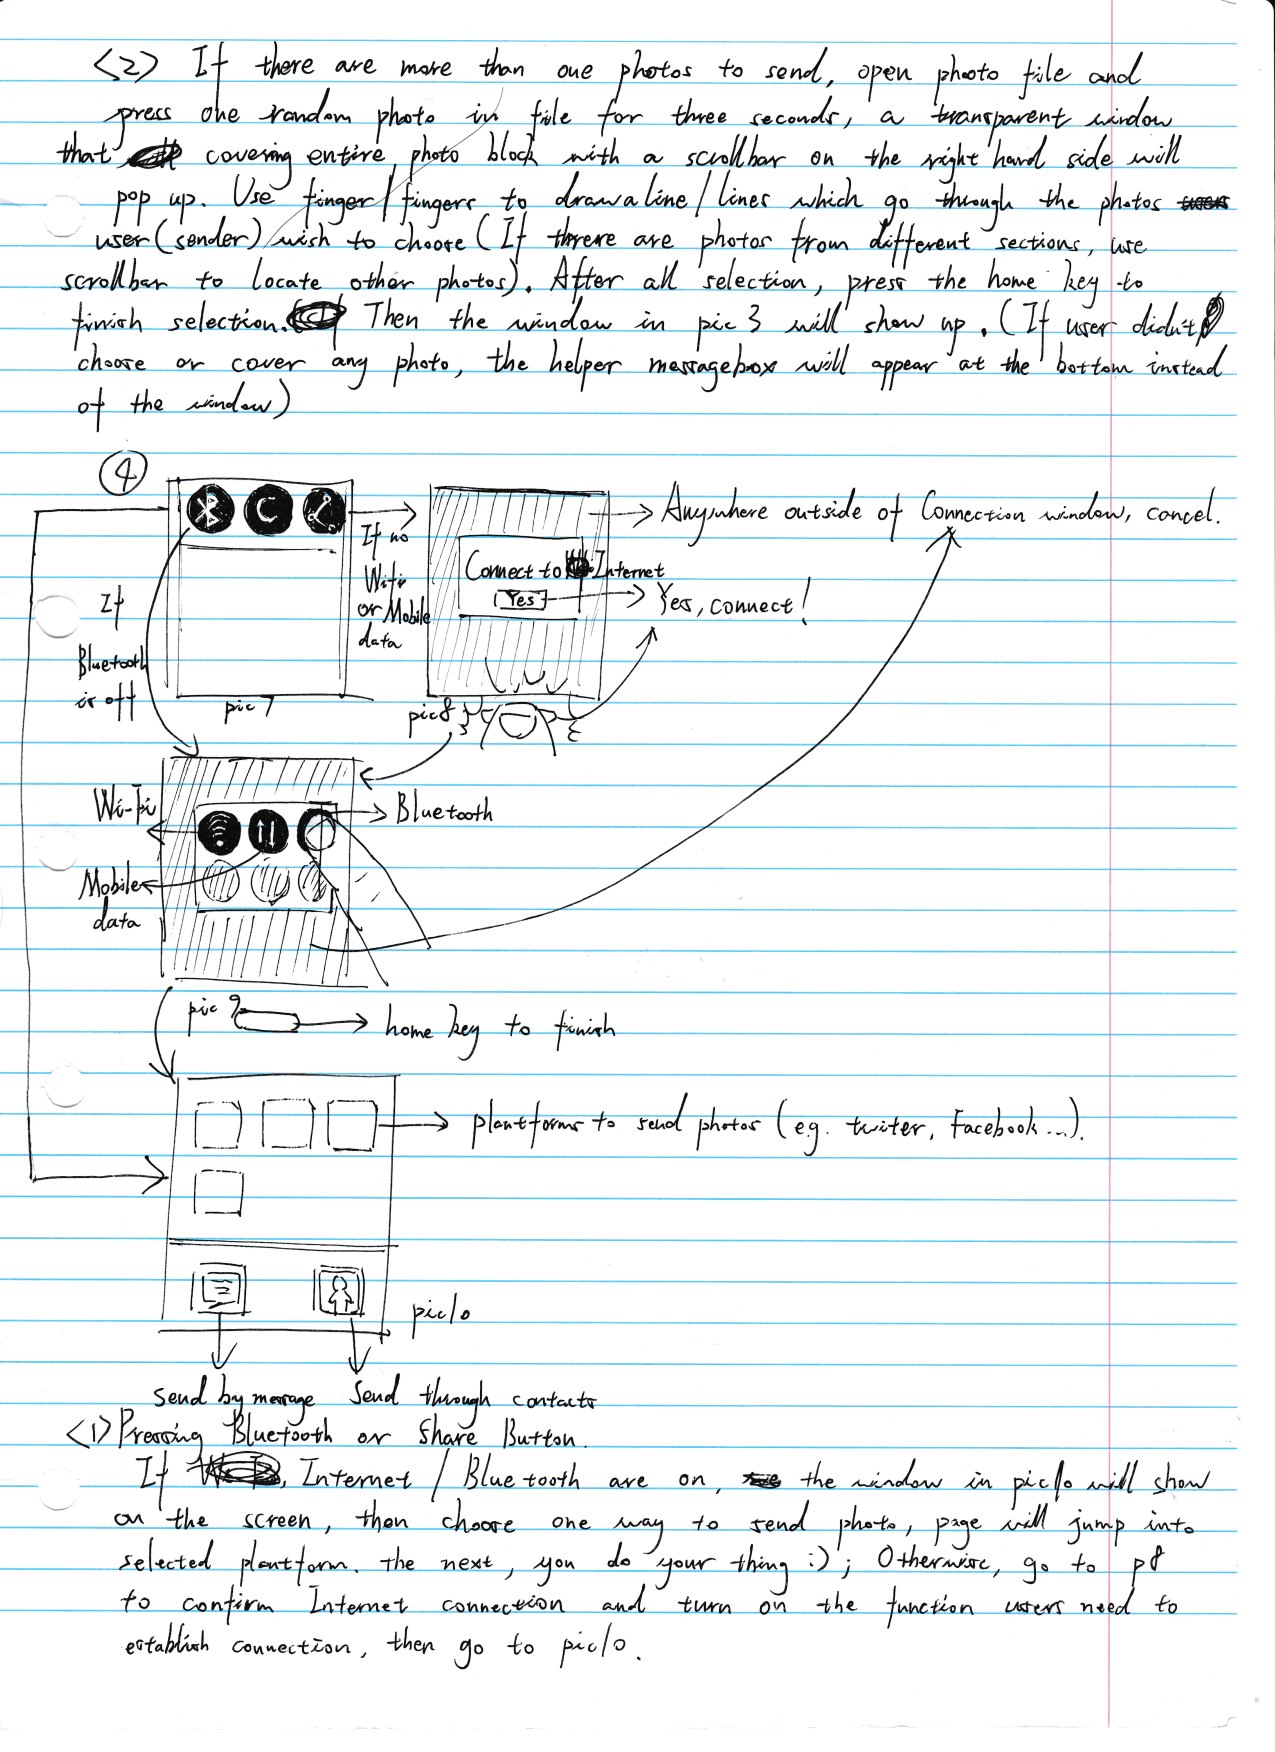 <2> If there are more than one photos to send, open photo file and
press one random photo in file for three seconds, a transparent window
that covering entire photo block with a scrollbar on the right hand side will
pop up. Use finger/fingers to draw a line/lines which go through the photos
user(sender) wish to choose (If threre are photos from different sections, use
scrollbar to locate other photos). After all selection, press the home key to
finish selection. Then the window in pic 3 will show up. (If user didn't
choose or cover any photo, the helper messagebox will appear at the bottom instead
of the window)
④
If no
Wi-Fi
or Mobile
data
Connect to Internet
Yes
Anywhere outside of Connection window, cancel.
Yes, connect!
If
Bluetooth
is off
pic 7
pic8
Wi-Fi
Bluetooth
Mobile
data
pic 9
home key to finish
plantforms to send photos (e.g. twiter, Facebook...).
pic10
Send by message Send through contacts
<1> Pressing Bluetooth or Share Button.
If Internet / Bluetooth are on, the window in pic10 will show
on the screen, then choose one way to send photo, page will jump into
selected plantform. The next, you do your thing :) ; Otherwise, go to p8
to confirm Internet connection and turn on the function users need to
establish connection, then go to pic10.